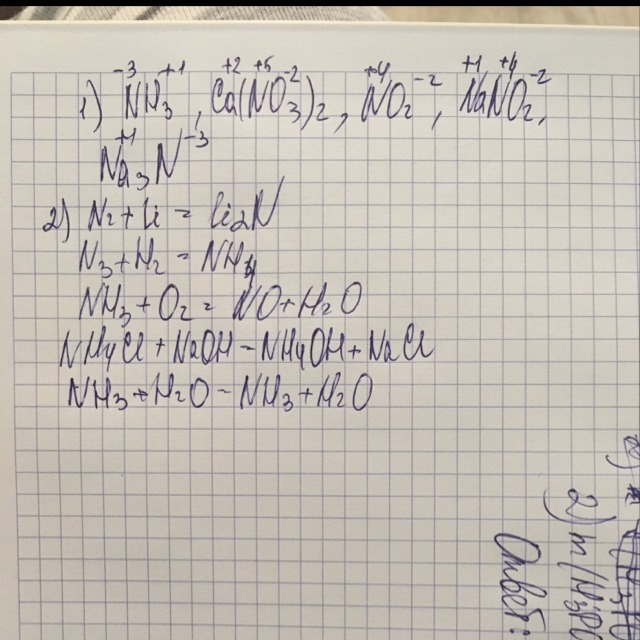 1) N⁻³H₃⁺¹, Ca⁺²(N⁺⁵O₃⁻²)₂, N⁺⁴O₂⁻², Na⁺¹N⁺⁴O₂⁻²,
Na₃⁺¹N⁻³
2) N₂ + Li = Li₂N
N₃ + H₂ = NH₄
NH₃ + O₂ = NO + H₂O
NH₄Cl + NaOH - NH₄OH + NaCl
NH₃ + H₂O - NH₃ + H₂O
2) m
Ответ: